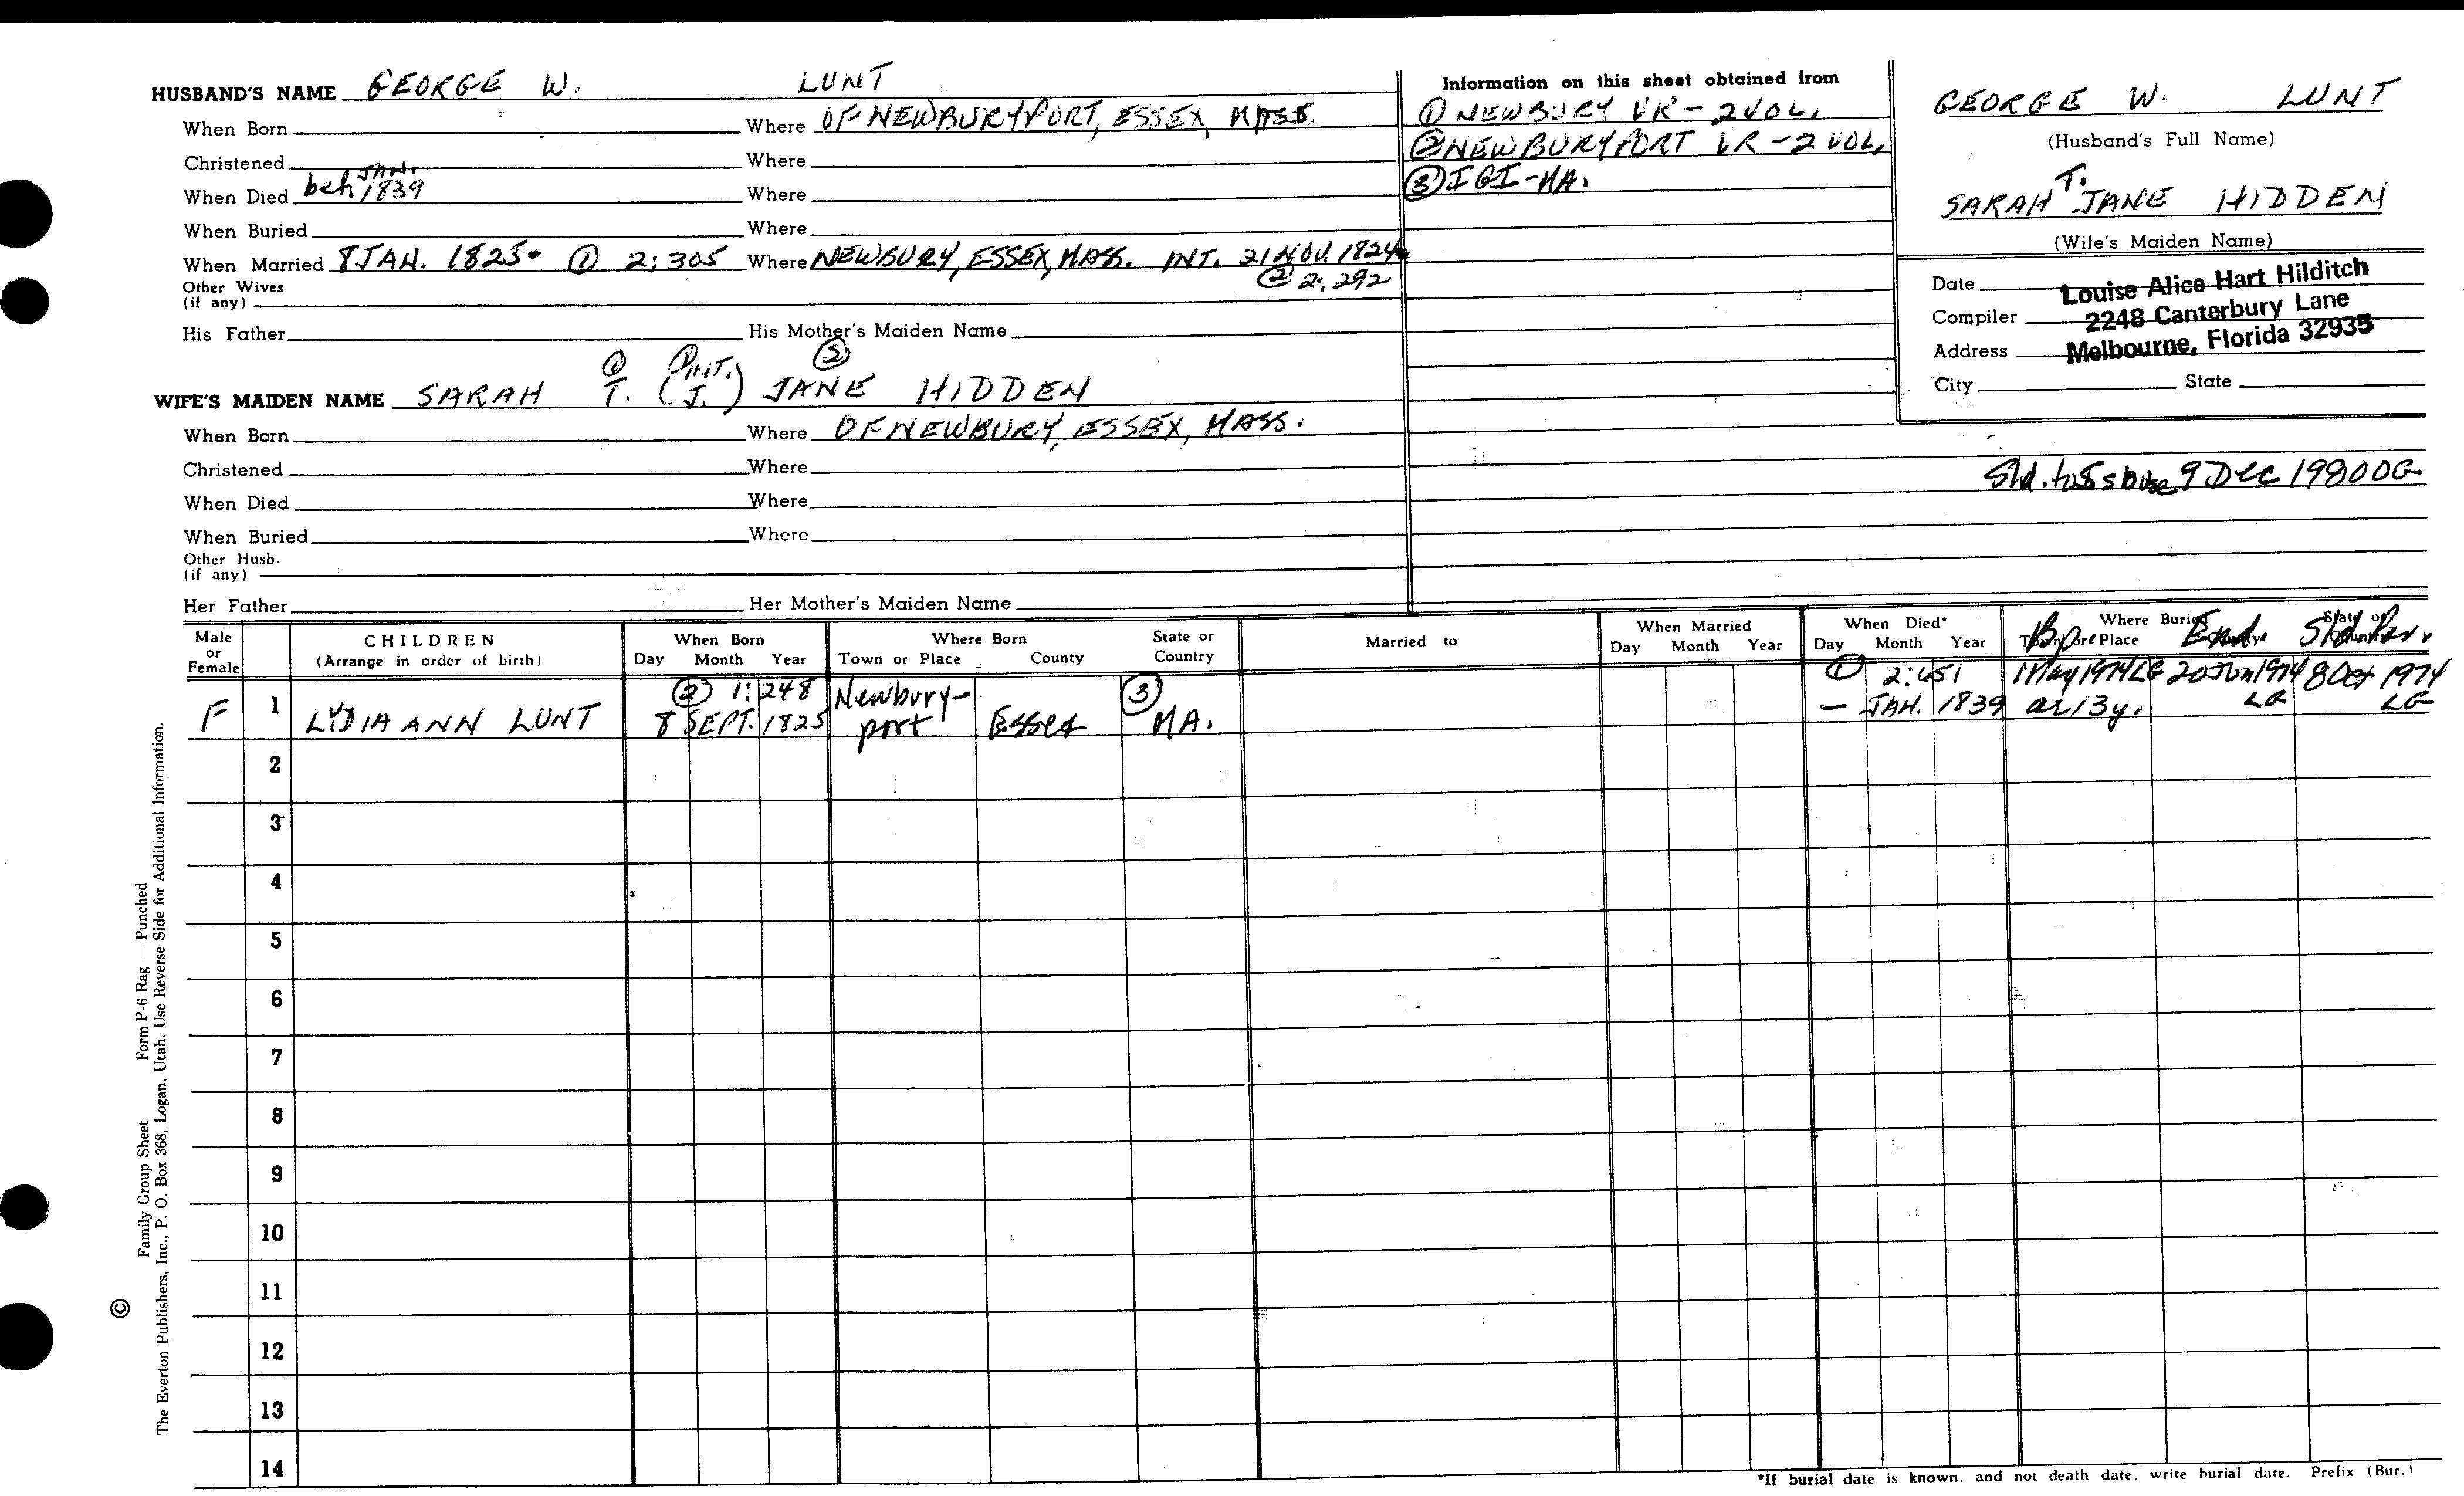 HUSBAND'S NAME GEORGE W. LUNT
When Born Where OF NEWBURYPORT, ESSEX, MASS.
Christened Where
When Died bef JAN. 1839 Where
When Buried Where
When Married 8 JAN. 1825 ① 2:305 Where NEWBURY, ESSEX, MASS. INT. 21 NOV. 1824
② 2:292
Other Wives
(if any)
His Father His Mother's Maiden Name
① ① INT. ③
WIFE'S MAIDEN NAME SARAH T. (J.) JANE HIDDEN
When Born Where OF NEWBURY, ESSEX, MASS.
Christened Where
When Died Where
When Buried Where
Other Husb.
(if any)
Her Father Her Mother's Maiden Name
Information on this sheet obtained from
① NEWBURY VR - 2 VOL.
② NEWBURYPORT VR - 2 VOL.
③ IGI - MA.
GEORGE W. LUNT
(Husband's Full Name)
T.
SARAH JANE HIDDEN
(Wife's Maiden Name)
Date
Compiler
Address
City State
Louise Alice Hart Hilditch
2248 Canterbury Lane
Melbourne, Florida 32935
Sld. to Spouse 9 Dec 1980 OG
Male or Female
CHILDREN
(Arrange in order of birth)
When Born
Day Month Year
Where Born
Town or Place County State or Country
Married to
When Married
Day Month Year
When Died*
Day Month Year
Where Buried
Town or Place County State or Country
Bp. End. Sld Par.
② 1:248 ③ ① 2:651 1 May 1974 LG 20 Jun 1974 LG 8 Oct 1974 LG
F 1 LYDIA ANN LUNT 8 SEPT. 1825 Newbury-port Essex MA. — JAN. 1839 ae 13y.
2
3
4
5
6
7
8
9
10
11
12
13
14
*If burial date is known, and not death date, write burial date. Prefix (Bur.)
Family Group Sheet Form P-6 Rag — Punched
© The Everton Publishers, Inc., P. O. Box 368, Logan, Utah. Use Reverse Side for Additional Information.